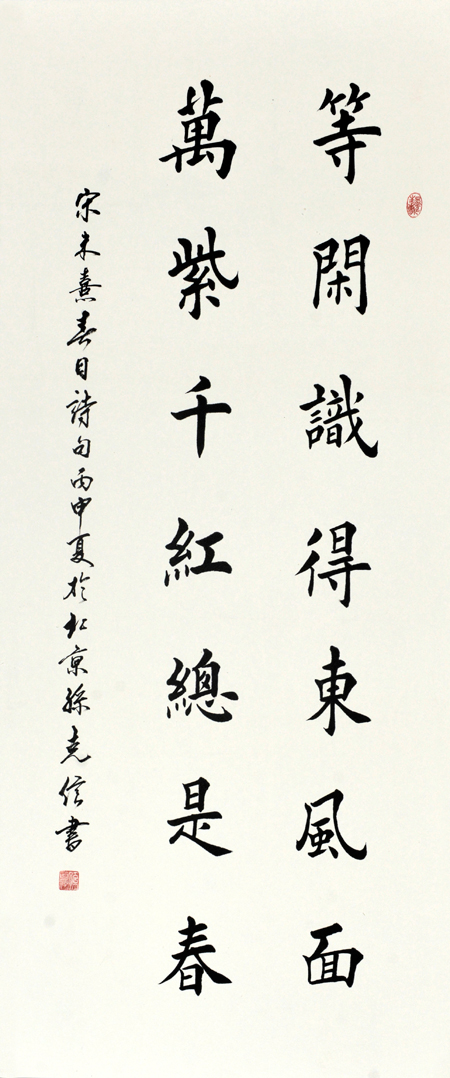 等閑識得東風面
萬紫千紅總是春
宋朱熹春日詩句丙申夏於北京孫克信書